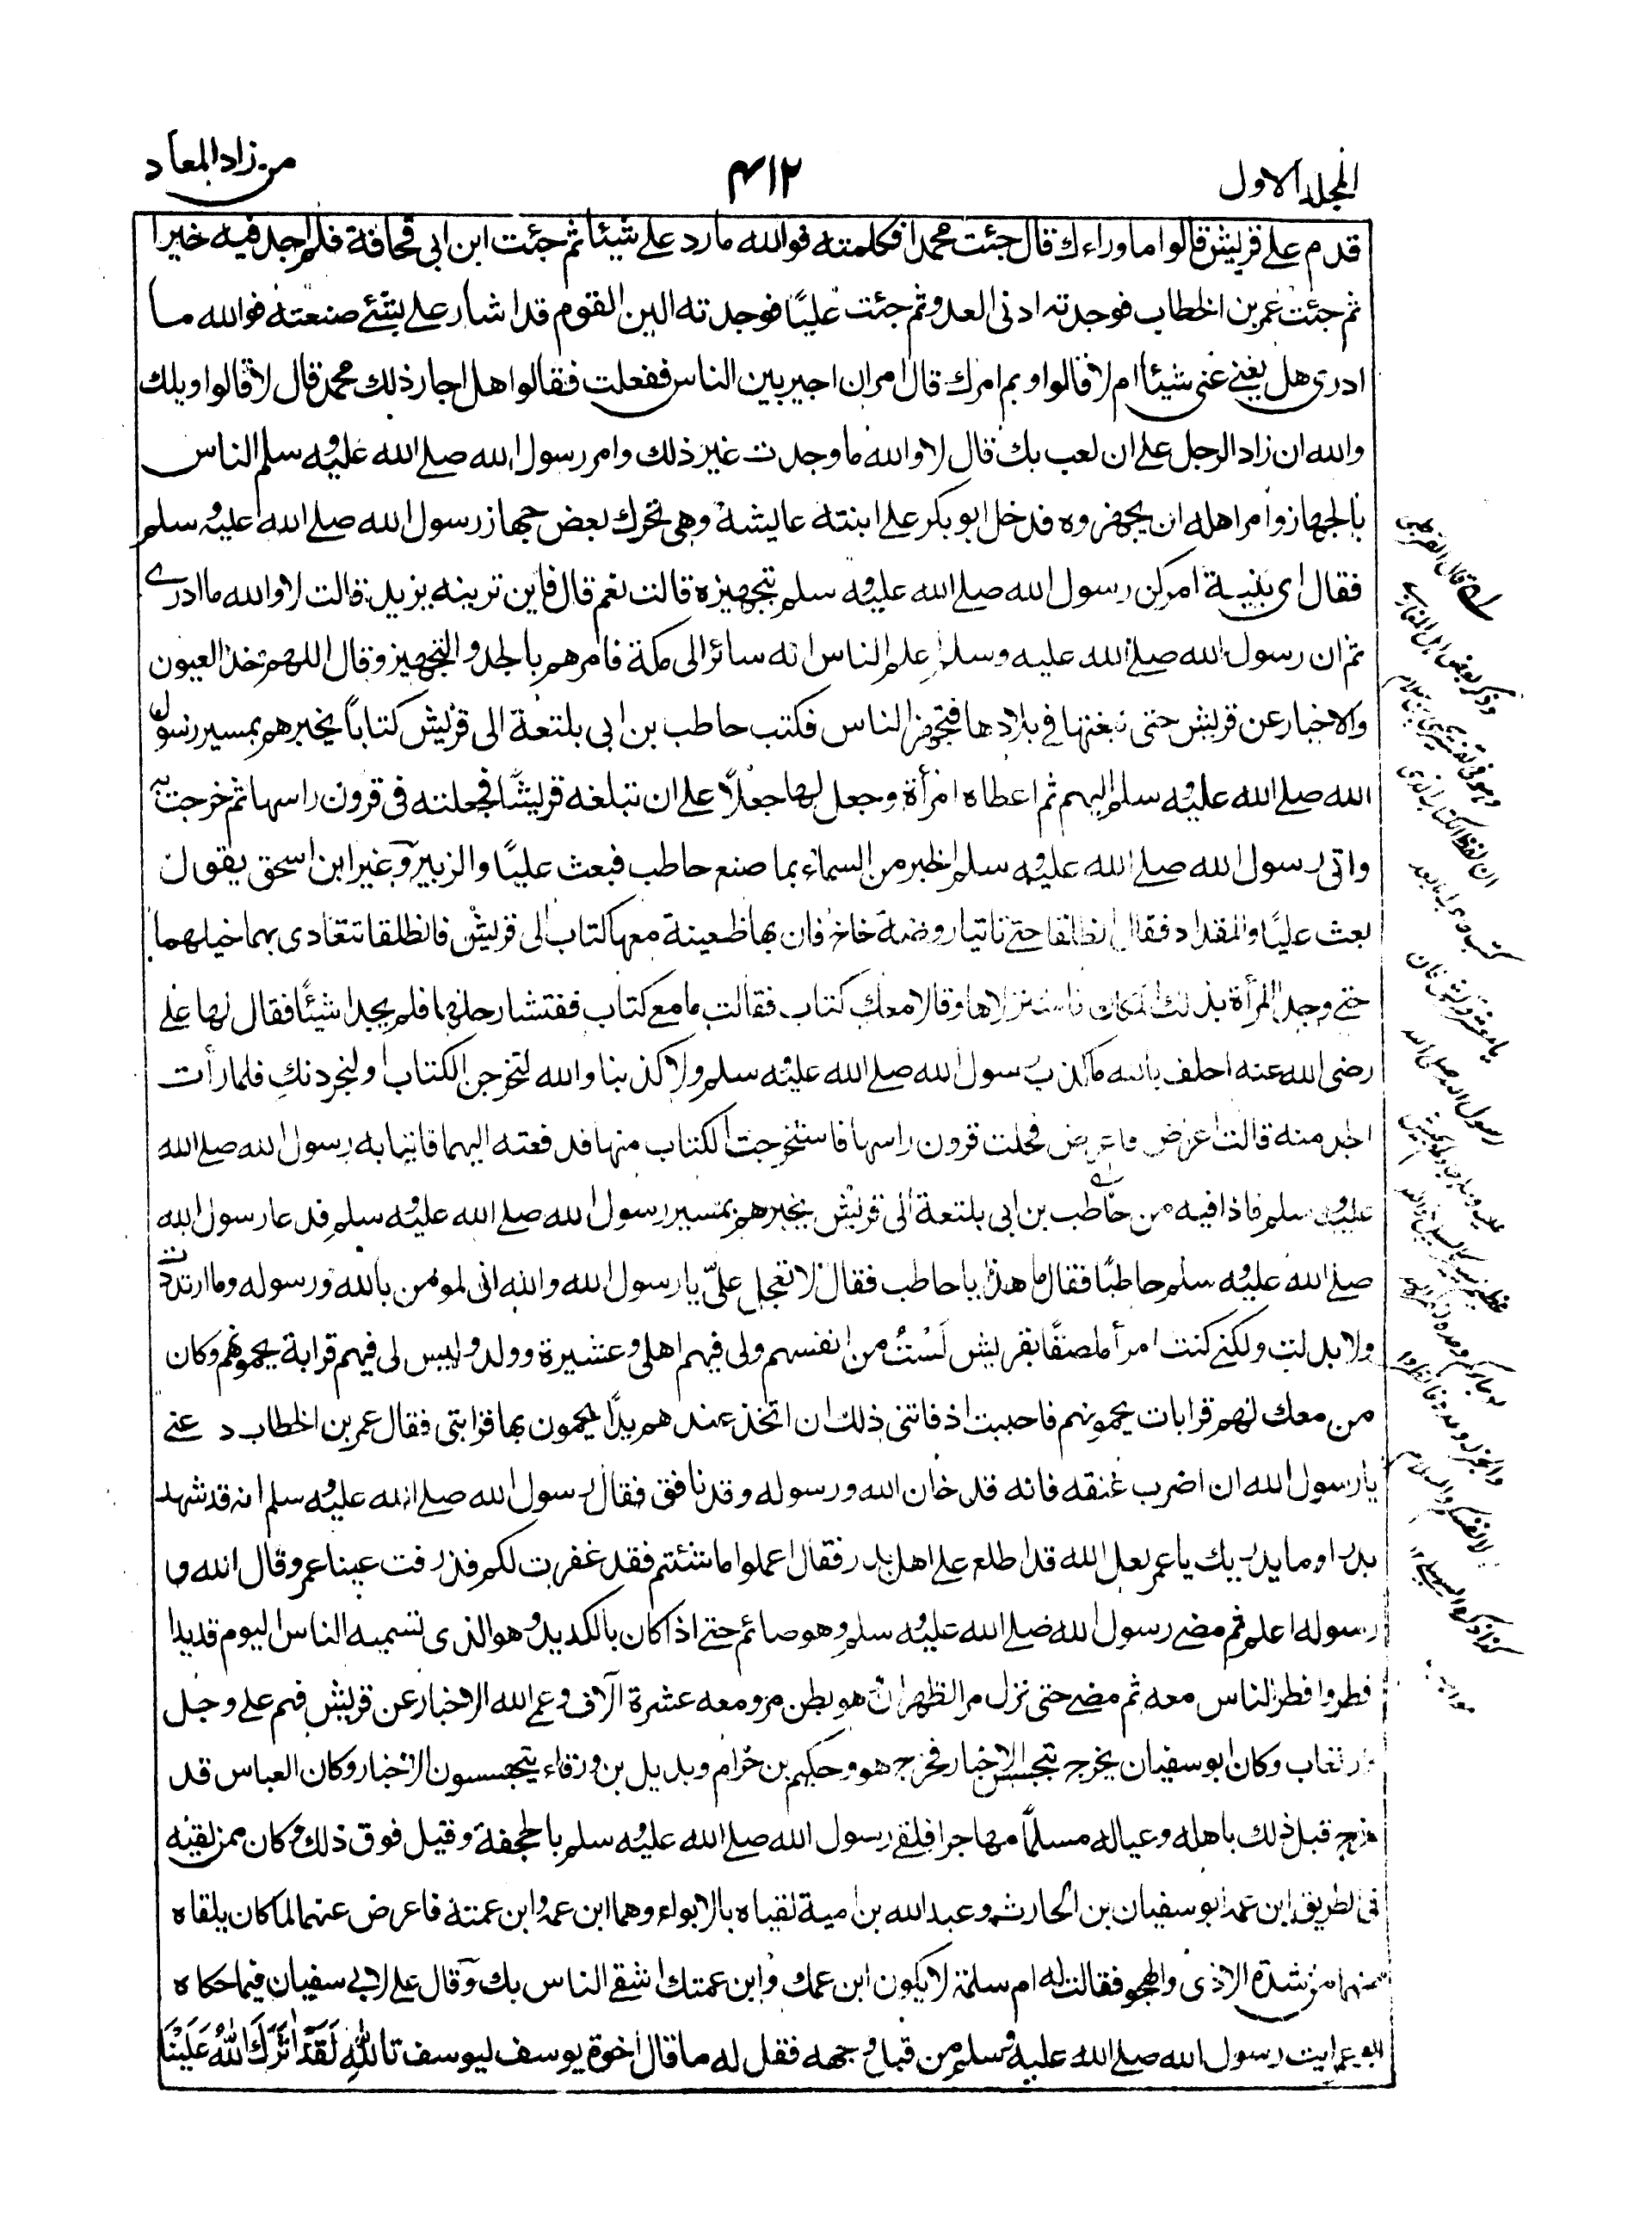 المجلد الاول
۴۱۲
من زاد المعاد
قدم على قريش قالوا ما وراءك قال جئت محمدا فكلمته فوالله ما رد على شيئا ثم جئت ابن ابى قحافة فلم اجد فيه خيرا
ثم جئت عمر بن الخطاب فوجدته ادنى العدو ثم جئت عليًا فوجدته الين القوم قد اشار على بشئ صنعته فوالله ما
ادرى هل يغنى عنى شيئا ام لا قالوا وبم امرك قال امر ان اجير بين الناس ففعلت فقالوا هل اجار ذلك محمد قال لا قالوا ويلك
والله ان زاد الرجل على ان لعب بك قال لا والله ما وجدت غير ذلك وامر رسول الله صلى الله عليه وسلم الناس
بالجهاز وامر اهله ان يجهزوه فدخل ابو بكر على ابنته عايشة وهى تحرك بعض جهاز رسول الله صلى الله عليه وسلم
فقال اى بنية امركن رسول الله صلى الله عليه وسلم بتجهيزه قالت نعم قال فاين ترينه يريد قالت لا والله ما ادرى
ثم ان رسول الله صلى الله عليه وسلم اعلم الناس انه سائر الى مكة فامرهم بالجد والتجهيز وقال اللهم خذ العيون
والاخبار عن قريش حتى نبغتها فى بلادها فتجهز الناس فكتب حاطب بن ابى بلتعة الى قريش كتابًا يخبرهم بمسير رسول
الله صلى الله عليه وسلم اليهم ثم اعطاه امرأة وجعل لها جعلًا على ان تبلغه قريشًا فجعلته فى قرون راسها ثم خرجت به
واتى رسول الله صلى الله عليه وسلم الخبر من السماء بما صنع حاطب فبعث عليًا والزبير وغير ابن اسحق يقول
بعث عليًا والمقداد فقال انطلقا حتى تاتيا روضة خاخ فان بها ظعينة معها كتاب الى قريش فانطلقا تتعادى بهما خيلهما
حتى وجدا المرأة بذلك المكان فاستنزلاها وقالا معك كتاب فقالت ما معى كتاب ففتشا رحلها فلم يجدا شيئًا فقال لها على
رضى الله عنه احلف بالله ما كذب رسول الله صلى الله عليه وسلم ولا كذبنا والله لتخرجن الكتاب او لنجردنكِ فلما رأت
الجد منه قالت اعرض فاعرض فحلت قرون راسها فاستخرجت الكتاب منها فدفعته اليهما فاتيا به رسول الله صلى الله
عليه وسلم فاذا فيه من حاطب بن ابى بلتعة الى قريش يخبرهم بمسير رسول الله صلى الله عليه وسلم فدعا رسول الله
صلى الله عليه وسلم حاطبًا فقال ما هذا يا حاطب فقال لا تعجل علىّ يا رسول الله والله انى لمومن بالله ورسوله وما ارتددت
ولا بدلت ولكنى كنت امرأ ملصقًا بقريش لَسْتُ من انفسهم ولى فيهم اهل وعشيرة وولد وليس لى فيهم قرابة يحمونهم وكان
من معك لهم قرابات يحمونهم فاحببت اذ فاتنى ذلك ان اتخذ عندهم يدًا يحمون بها قرابتى فقال عمر بن الخطاب دعنى
يا رسول الله ان اضرب عنقه فانه قد خان الله ورسوله وقد نافق فقال رسول الله صلى الله عليه وسلم انه قد شهد
بدرا وما يدريك يا عمر لعل الله قد اطلع على اهل بدر فقال اعملوا ما شئتم فقد غفرت لكم فذرفت عينا عمر وقال الله و
رسوله اعلم ثم مضى رسول الله صلى الله عليه وسلم وهو صائم حتى اذا كان بالكديد وهو الذى تسميه الناس اليوم قديدا
فطر وافطر الناس معه ثم مضى حتى نزل مر الظهران هو بطن مر ومعه عشرة آلاف وعمى الله الاخبار عن قريش فهم على وجل
وارتغاب وكان ابو سفيان يخرج يتجسس الاخبار فخرج هو وحكيم بن حزام وبديل بن ورقاء يتجسسون الاخبار وكان العباس قد
خرج قبل ذلك باهله وعياله مسلمًا مهاجرا فلقى رسول الله صلى الله عليه وسلم بالجحفة وقيل فوق ذلك وكان ممن لقيه
فى الطريق ابن عمه ابو سفيان بن الحارث وعبد الله بن امية لقياه بالابواء وهما ابن عمه وابن عمته فاعرض عنهما لما كان يلقاه
منهما من شدة الاذى والهجو فقالت له ام سلمة لا يكون ابن عمك وابن عمتك اشقى الناس بك وقال على لابى سفيان فيما حكاه
ابو عمر ايت رسول الله صلى الله عليه وسلم من قبل وجهه فقل له ما قال اخوة يوسف ليوسف تاللهِ لَقَدْ اٰثَرَكَ اللهُ عَلَيْنَا